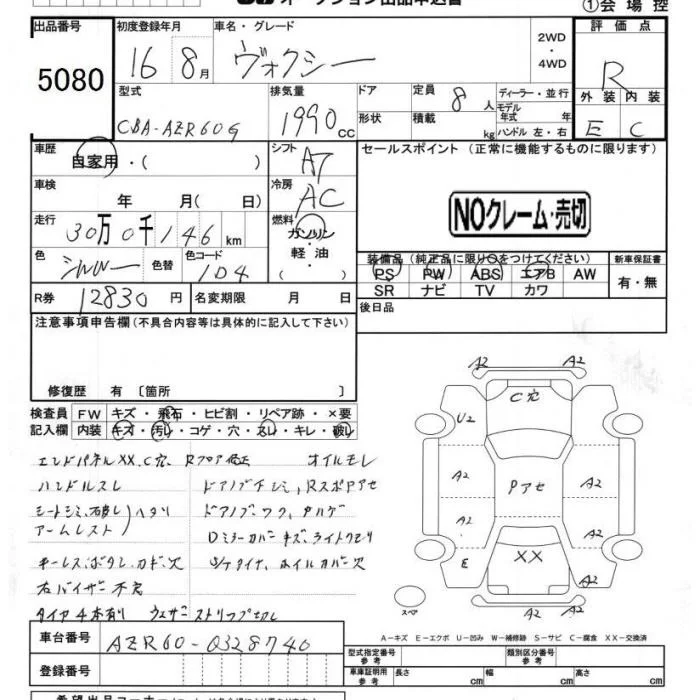 オークション出品申込書
①会場控
出品番号 初度登録年月 車名・グレード 2WD ・ 4WD 評価点
5080 16 8月 ヴォクシー R
型式 排気量 ドア 定員 8人 ディーラー・並行 外装 内装
CBA-AZR60G 1990 cc 形状 積載 kg モデル年式 年 ハンドル 左・右 E C
車歴 自家用・( ) シフト AT セールスポイント (正常に機能するものに限ります)
車検 年 月( 日) 冷房 AC
NOクレーム・売切
走行 30万0千146km 燃料 ガソリン
軽油・( )
色 シルバー 色替 色コード 1D4
装備品(純正品に限り○をつけてください) 新車保証書
PS PW ABS エアB AW 有・無
SR ナビ TV カワ
R券 12830円 名変期限 月 日 後日品
注意事項申告欄(不具合内容等は具体的に記入して下さい)
修復歴 有 〔箇所 〕
検査員 FW キズ・飛石・ヒビ割・リペア跡・×要
記入欄 内装 キズ・汚い・コゲ・穴・キレ・破レ
エンドパネルXX、C穴 Rフロア修正 オイルモレ
ハンドルスレ
シートシミ
アームレスト ヘタリ
Dミラーカバーキズ、ライトクモリ
キーレス、ボタン、カド、欠 ホイルカバー欠
右バイザー不完
タイヤ4本有り ウェザーストリップ切レ
A2 A2
C穴
U2
A2 A2
Pアセ
A2 A2
E XX A2
スペア
A2 A2
車台番号 AZR60-0328740
A-キズ E-エクボ U-凹み W-補修跡 S-サビ C-腐食 XX-交換済
登録番号
型式指定番号 参考 類別区分番号 参考
車庫証明用 参考 長さ cm 幅 cm 高さ cm